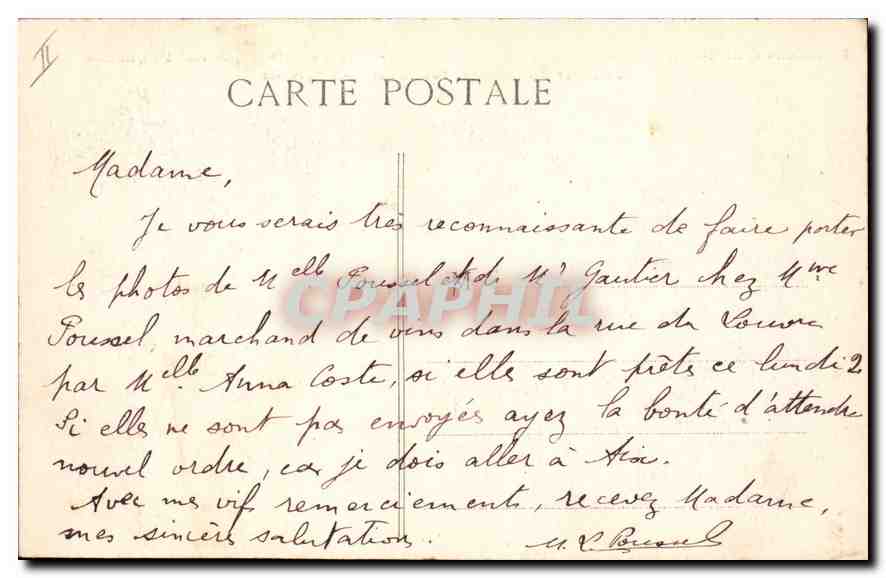 II
CARTE POSTALE
Madame,
Je vous serais très reconnaissante de faire porter
les photos de Melle Poussel et de Mr Gautier chez Mme
Poussel, marchand de vins dans la rue du Louvre
par Melle. Anna Coste, si elles sont prêtes ce lundi 2
Si elles ne sont pas envoyés ayez la bonté d'attendre
nouvel ordre, car je dois aller à Aix.
Avec mes vifs remerciements, recevez Madame,
mes sincères salutations.
M. L. Poussel
CPAPHIL